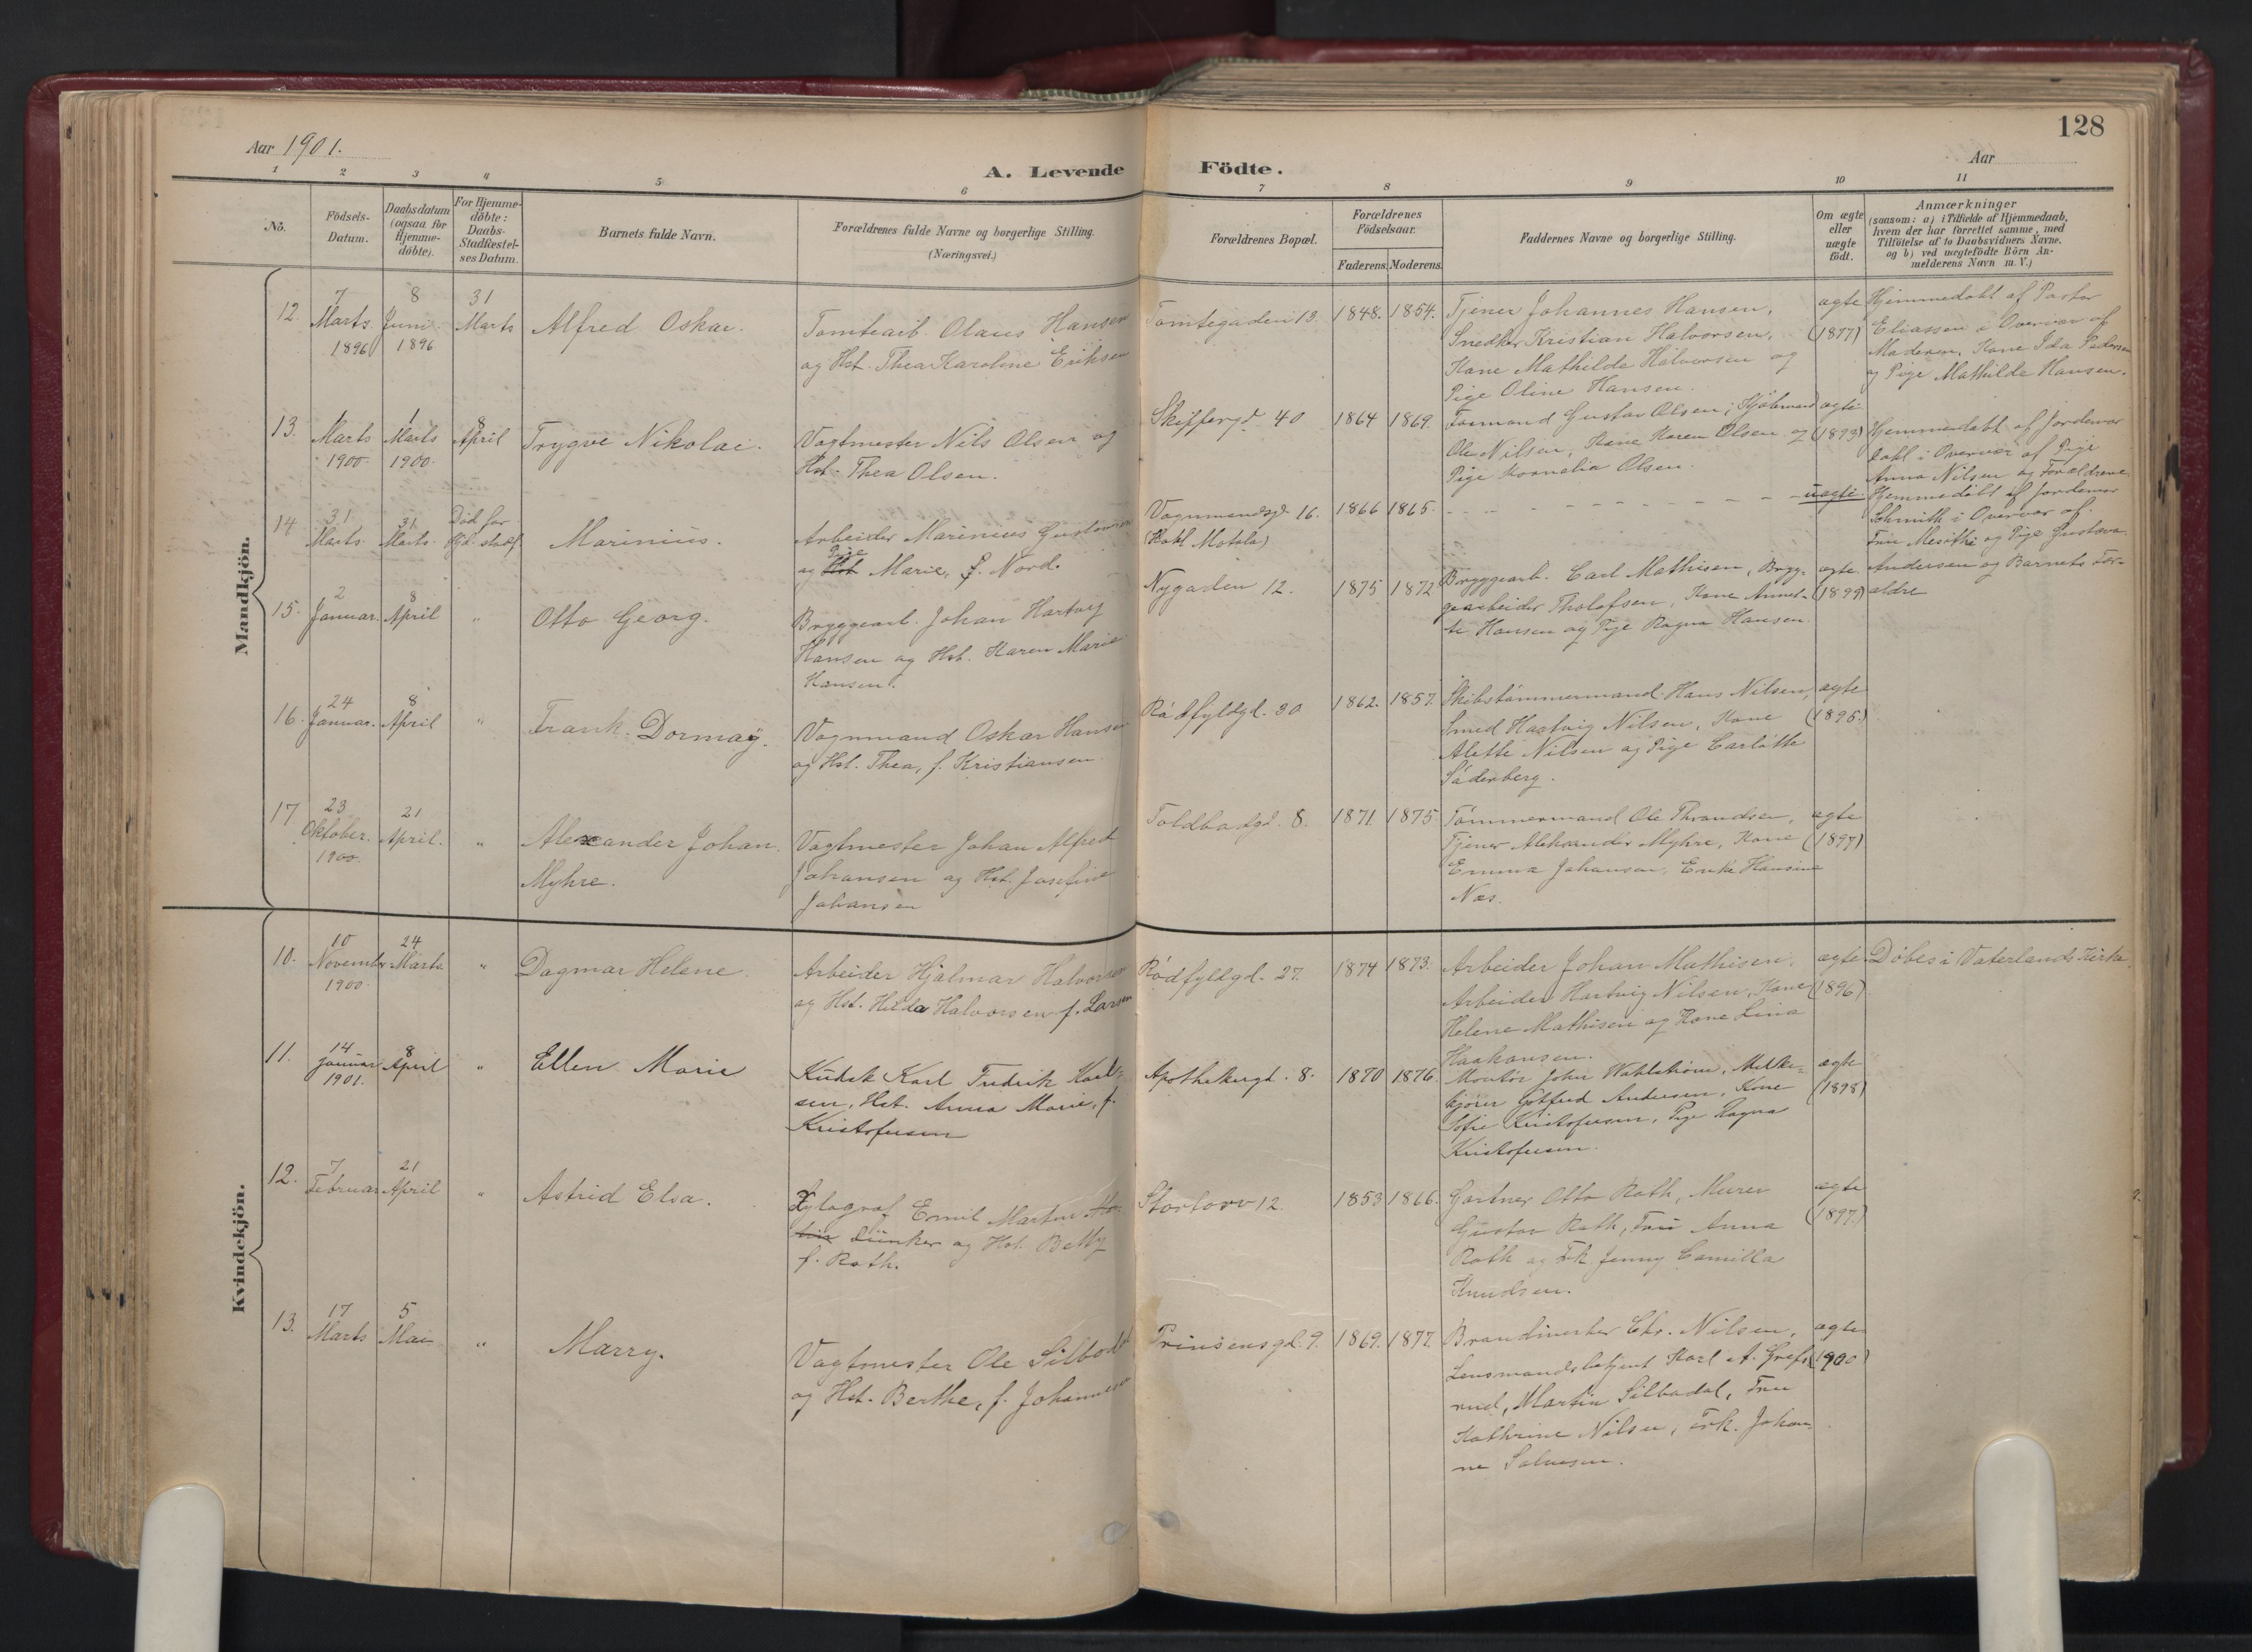 128
Aar 1901.
Aar
A. Levende Födte.
1 2 3 4 5 6 7 8 9 10 11
No.
Födsels-
Datum.
Daabsdatum
(ogsaa for
Hjemme-
döbte).
For Hjemme-
döbte:
Daabs-
Stadfæstel-
ses Datum.
Barnets fulde Navn.
Forældrenes fulde Navne og borgerlige Stilling.
(Næringsvei.)
Forældrenes Bopæl.
Forældrenes
Födselsaar.
Faderens. Moderens.
Faddernes Navne og borgerlige Stilling.
Om ægte
eller
uægte
födt.
Anmærkninger
(saasom: a) i Tilfælde af Hjemmedaab,
hvem der har forrettet samme, med
Tilföielse af to Daabsvidners Navne,
og b) ved uægtefödte Börn An-
melderens Navn m. V.)
Mandkjön.
12.
7
Marts
1896
8
Juni
1896
31
Marts
Alfred Oskar.
Tomtearb. Olaus Hansen
og Hst. Thea Karoline Eriksen
Tomtegaden 13.
1848. 1854.
Tjener Johannes Hansen,
Snedker Kristian Halvorsen,
Kone Mathilde Halvorsen og
Pige Oline Hansen.
ægte
(1877)
Hjemmedøbt af Pastor
Eliassen i Overvær af
Moderen, Kone Ida Pedersen
og Pige Mathilde Hansen.
13.
1
Marts
1900
1
Marts
1900
8
April
Trygve Nikolai.
Vagtmester Nils Olsen og
Hst. Thea Olsen.
Skippergd. 40
1864 1869.
Formand Gustav Olsen,
Ole Nilsen, Kone Karen Olsen og
Pige Kornelia Olsen.
ægte
(1893)
Hjemmedøbt af Jordemor
Dahl i Overvær af Pige
Anna Nilsen og Forældrene
14
31
Marts.
31
Marts.
Død før
Hjd. stadf.
Marinius.
Arbeider Marinius Gustavsen
og Hst Pige Marie, f. Nord.
Vognmandsgd. 16.
(Hotel Motala)
1866 1865.
uægte
Hjemmedøbt af Jordemor
Schmith i Overvær af
Fru og Pige Gustava
Andersen og Barnets For-
ældre
15.
2
Januar.
8
April
"
Otto Georg.
Bryggearb. Johan Hartvig
Hansen og Hst. Karen Marie
Hansen.
Nygaden 12.
1875 1872
Bryggearb. Carl Mathisen, Bryg-
gearbeider Tholofsen, Kone Annet-
te Hansen og Pige Ragna Hansen.
ægte
(1899)
16.
24
Januar.
8
April
"
Frank Dormay.
Vognmand Oskar Hansen
og Hst. Thea, f. Kristiansen
Rødfyldgd. 30
1862. 1857.
Skibstømmermand Hans Nilsen,
Smed Hartvig Nilsen, Kone
Alette Nilsen og Pige Carlotte
Søderberg.
ægte
(1895.)
17
23
Oktober.
1900.
21
April.
"
Alexander Johan
Myhre.
Vagtmester Johan Alfred
Johansen og Hst. Josefine
Johansen
Toldbodgd. 8.
1871. 1875.
Tømmermand Ole Thrandsen,
Tjener Aleksander Myhre, Kone
Emma Johansen, Enke Hansine
Næs.
ægte
(1897)
Kvindekjön.
10.
10
November
1900.
24
Marts
"
Dagmar Helene.
Arbeider Hjalmar Halvorsen
og Hst. Hilda Halvorsen f. Larsen
Rødfyllgd. 27.
1874 1873.
Arbeider Johan Mathisen.
Arbeider Hartvig Nilsen, Kone
Helene Mathisen og Kone Lina
Haakonsen.
ægte
(1896)
Døbes i Vaterlands Kirke.
11.
14
Januar
1901.
8
April
"
Ellen Marie
Kudsk Karl Fredrik Karl-
sen, Hst. Anna Marie, f.
Kristofersen
Apothekergd. 8.
1870 1876.
Montør John Wahlstrøm, Melke-
kjører Gotfred Andersen, Kone
Sofie Kristofersen, Pige Ragna
Kristofersen.
ægte
(1898)
12.
7
Februar
21
April
"
Astrid Elsa.
Xylograf Emil Martin
Dünker og Hst. Betty
f. Rath.
Stortorv 12.
1853 1866.
Gartner Otto Rath, Murer
Gustav Rath, Fru Anna
Rath og Frk. Jenny Camilla
Knudsen.
ægte
(1897.)
13.
17
Marts
5
Mai
"
Marry.
Vagtmester Ole Silbodal
og Hst. Berthe, f. Johannesen
Prinsensgd. 9.
1869. 1877.
Brandmester Chr. Nilsen,
Lensmandsbetjent Karl A. Grefs-
rud, Martin Silbodal, Fru
Kathrine Nilsen, Frk. Johan-
ne Salvesen.
ægte
(1900)